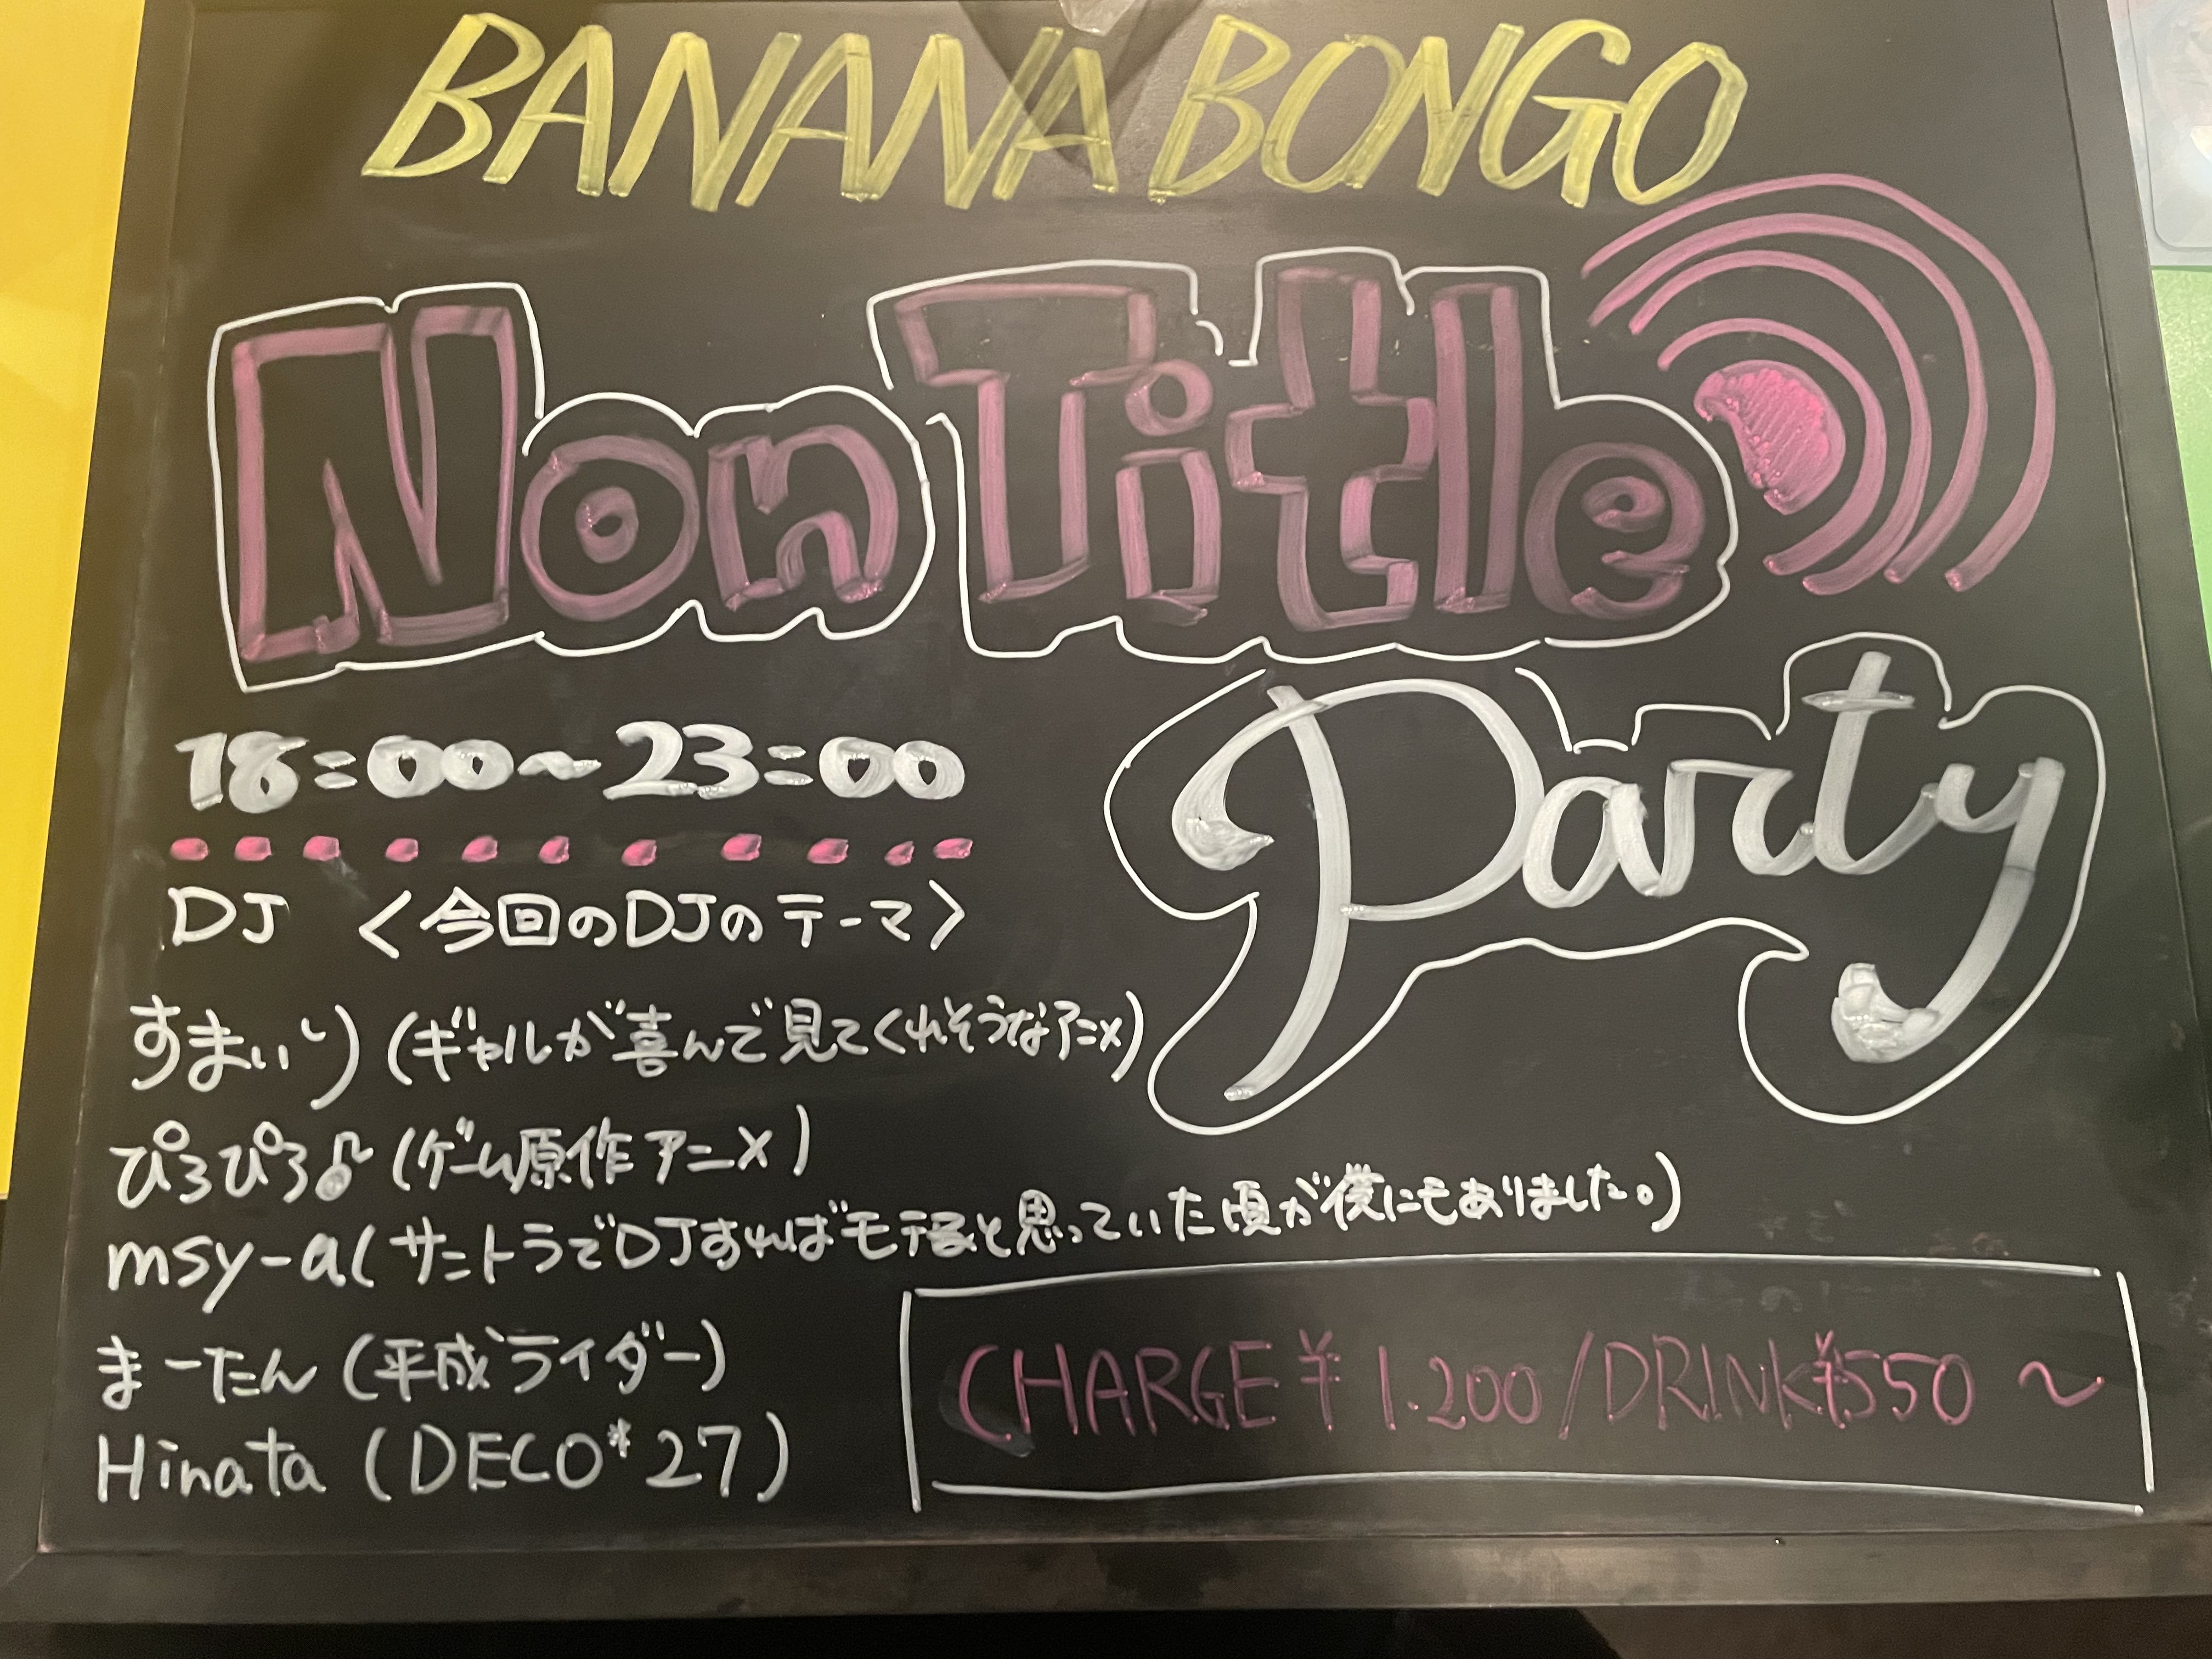 BANANA BONGO
Non Title
Party
18:00~23:00
DJ <今回のDJのテーマ>
すまいり(ギャルが喜んで見てくれそうなアニメ)
ぴろぴろ♪(ゲーム原作アニメ)
msy-a(サントラでDJすればモテると思っていた頃が僕にもありました。)
まーたん(平成ライダー)
Hinata(DECO*27)
CHARGE ¥1.200/DRINK¥550~